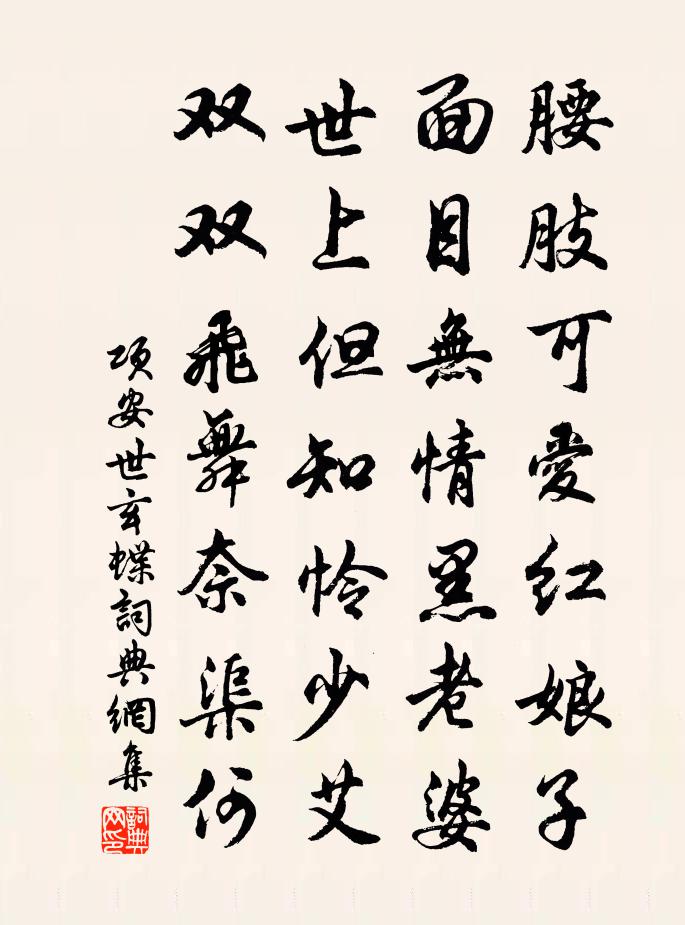 腰肢可愛红娘子
面目無情黑老婆
世上但知怜少艾
双双飛舞奈渠何
项安世玄蝶詞典網集
詞典网印